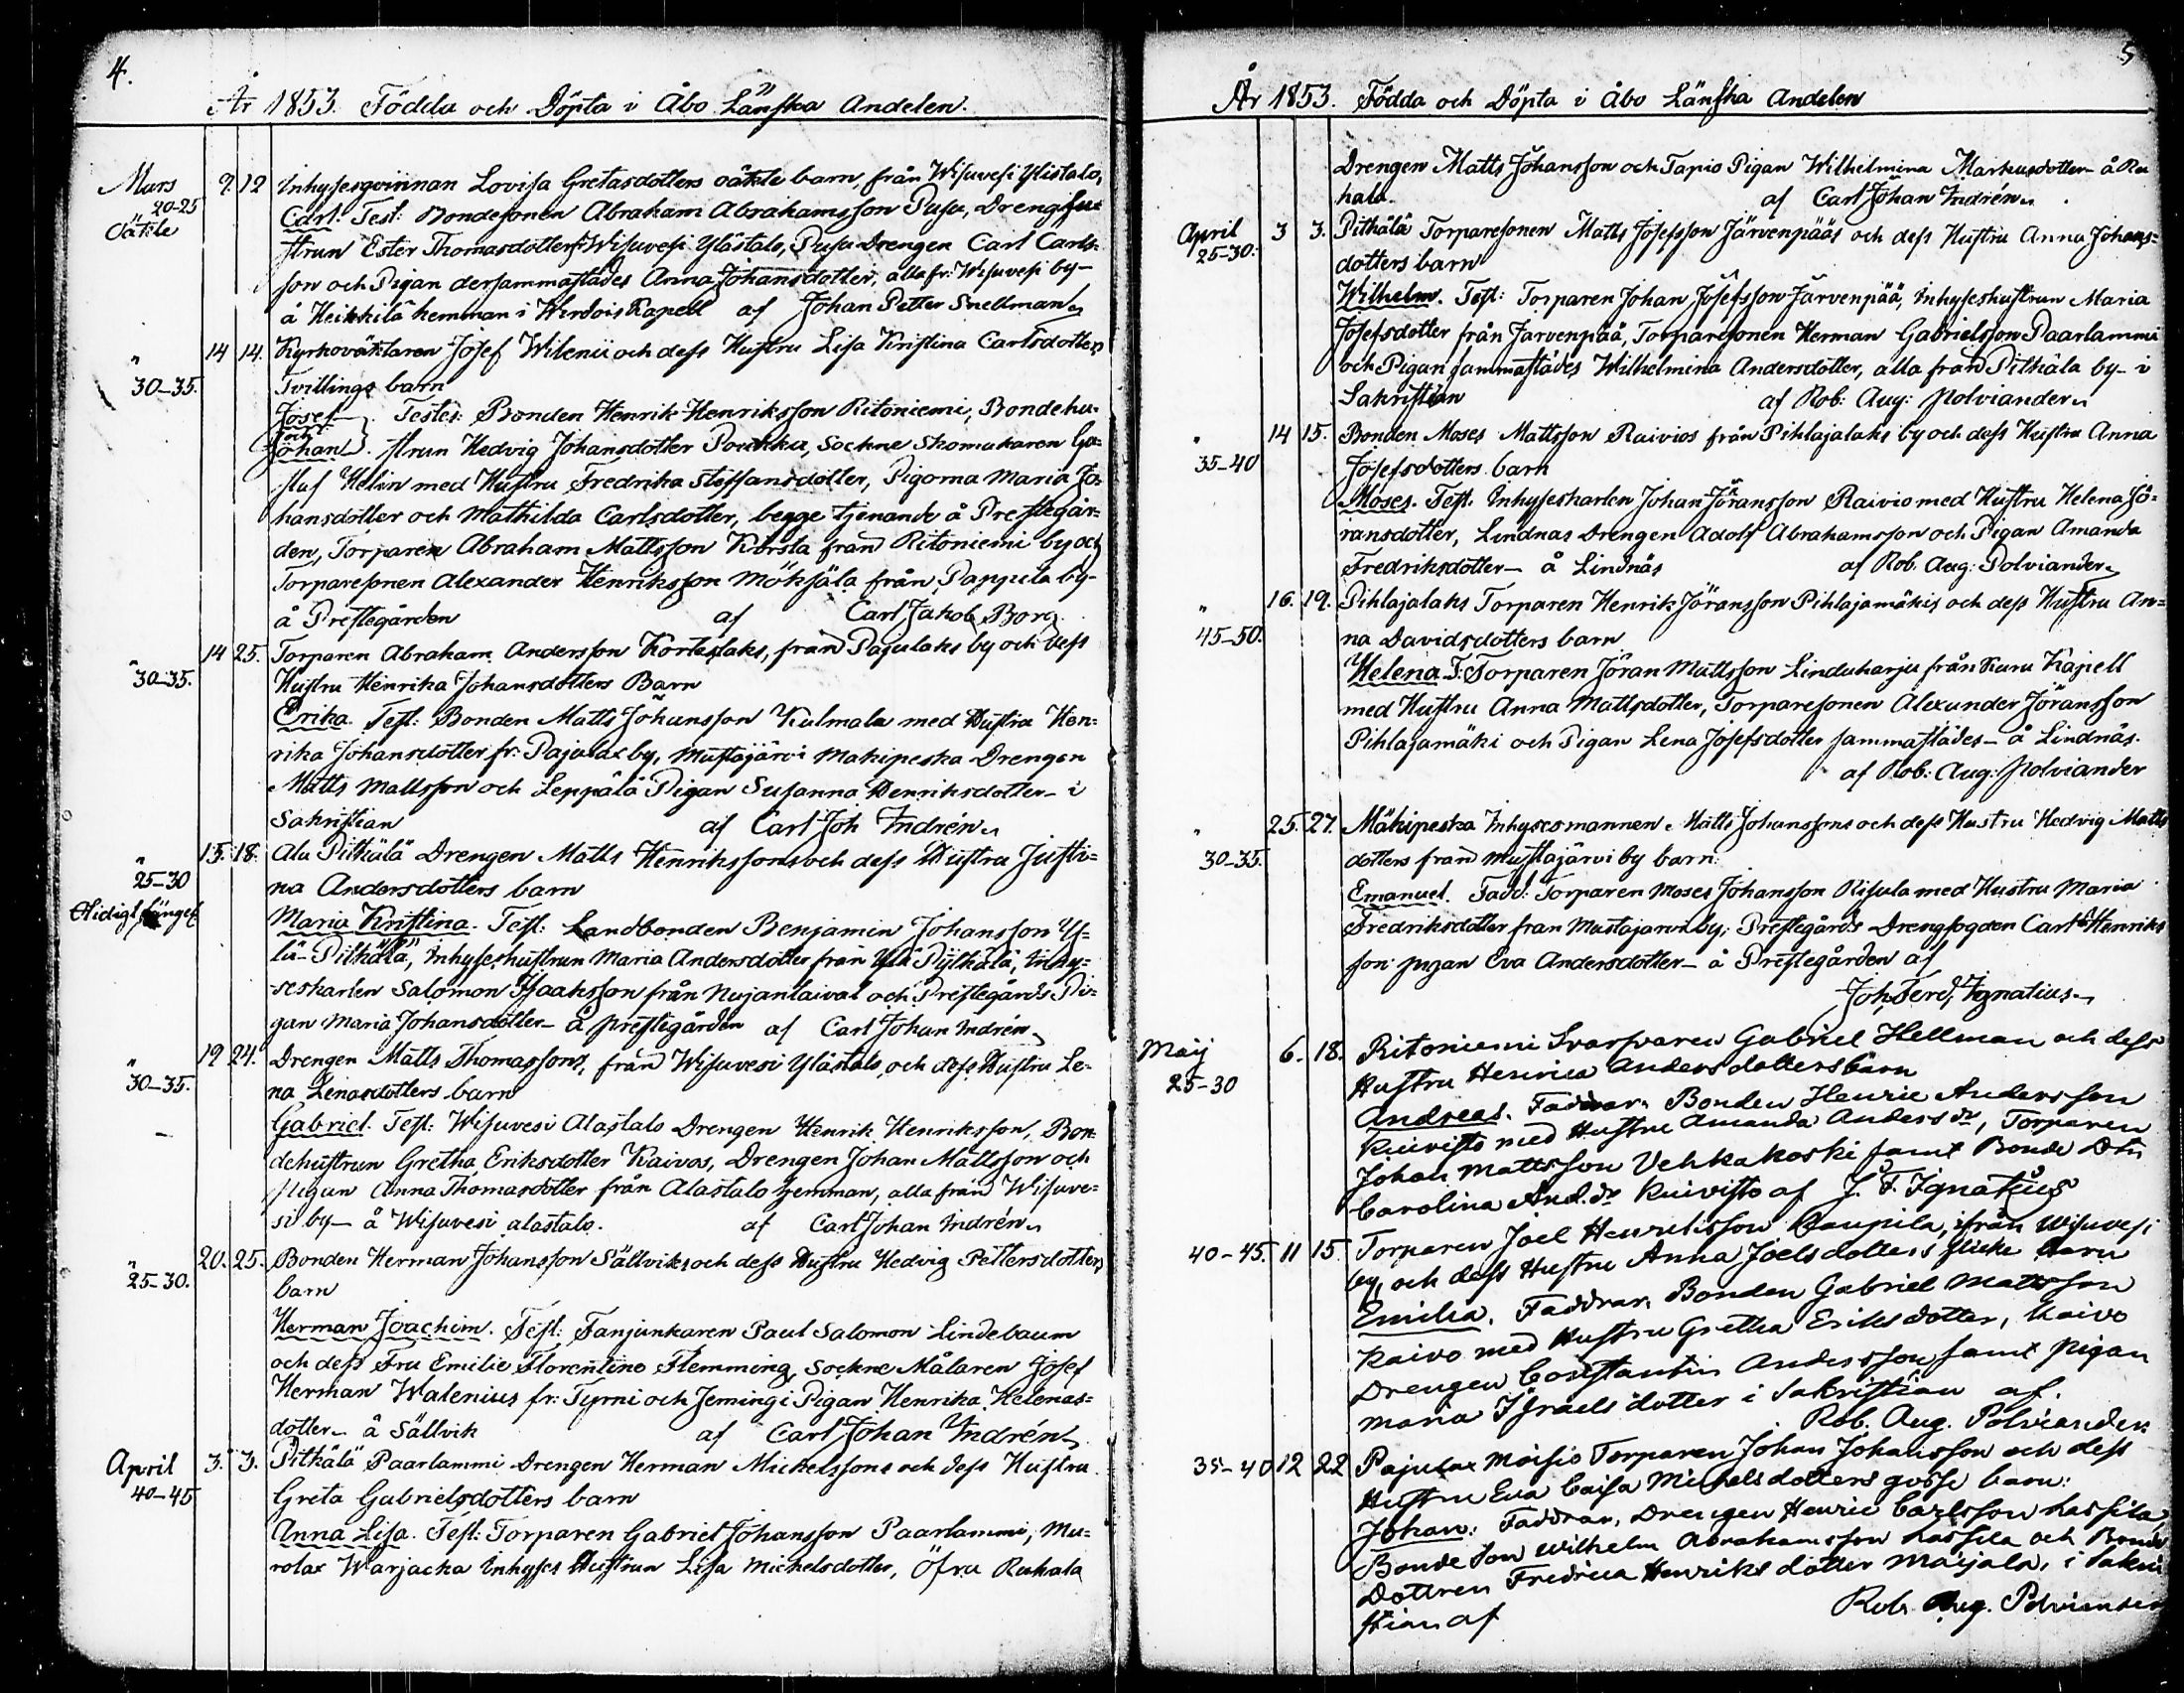 4.
År 1853. Födda och Döpta i Åbo Länska Andelen.
Mars 9. 12 Inhysesqvinnan Lovisa Gretasdotters oäkta barn, från Wisuvesi Ylistalo,
20-25 Carl. Test: Bondesonen Abraham Abrahamsson Pusa, Drenghu-
Oäkte strun Ester Thomasdotter fr: Wisuvesi Ylästalo, Pusa Drengen Carl Carls-
son och Pigan dersammastädes Anna Johansdotter, alla fr: Wisuvesi by-
å Heikkilä hemman i Wirdois Kapell af Johan Petter Snellman
" 14 14. Kyrkoväktaren Josef Wilenii och dess Hustru Lisa Kristina Carlsdotters
30-35. Tvillinge barn
Josef Testes: Bonden Henrik Henriksson Ritoniemi, Bondehu-
och
Johan. strun Hedvig Johansdotter Pouhka, Sockne Skomakaren Gu-
staf Helin med Hustru Fredrika Steffansdotter, Pigorna Maria Jo-
hansdotter och Mathilda Carlsdotter, begge tjenande å Prestegår-
den, Torparen Abraham Mattsson Korsta från Ritoniemi by och
Torparesonen Alexander Henriksson Möksälä från Pappila by-
å Prestegården af Carl Jakob Borg.
" 14 25. Torparen Abraham Andersson Kortelaks, från Pajulaks by och dess
30-35. Hustru Henrika Johansdotters Barn
Erika. Test: Bonden Matts Johansson Kulmala med Hustru Hen-
rika Johansdotter fr: Pajulax by, Mustajärvi Makipeska Drengen
Matts Mattsson och Leppälä Pigan Susanna Henriksdotter- i
Sakristian af Carl Joh Indrén
" 15. 18. Ala Pitkälä Drengen Matts Henrikssons och dess Hustru Justi-
25-30 na Andersdotters barn
Maria Kristina. Test: Landbonden Benjamin Johansson Y-
lä-Pitkälä, Inhyseshustrun Maria Andersdotter från Ylä Pytkälä, Inhy-
seskarlen Salomon Isaaksson från Nujanlaival och Prestegårds Pi-
gan Maria Johansdotter- å prestegården af Carl Johan Indrén
" 19 24. Drengen Matts Thomassons, från Wisuvesi Ylästalo, och dess Hustru Le-
30-35. na Lenasdotters barn
Gabriel. Test: Wisuvesi Alastalo Drengen Henrik Henriksson, Bon-
dehustrun Gretha Eriksdotter Kaivos, Drengen Johan Mattsson och
pigan Anna Thomasdotter från Alastalo hemman, alla från Wisuve-
si by- å Wisuvesi alastalo. af Carl Johan Indrén
" 20. 25. Bonden Herman Johansson Sällviks och dess Hustru Hedvig Pettersdotters
25-30. barn
Herman Joachim. Test: Fanjunkaren Paul Salomon Lindebaum
och dess Fru Emilie Florentine Flemming, Sockne Målaren Josef
Herman Walenius fr: Tyrni och Jemingi Pigan Henrika Helenas-
dotter- å Sällvik af Carl Johan Indrén
April 3. 3. Pitkälä Paarlammi Drengen Herman Michelssons och dess Hustru
40-45 Greta Gabrielsdotters barn
Anna Lisa. Test: Torparen Gabriel Johansson Paarlammi, Mu-
rolax Warjacka Inhyses Hustrun Lisa Michelsdotter, Öfra Ruhala
5
År 1853. Födda och Döpta i Åbo Länska Andelen
Drengen Matts Johansson och Tapio Pigan Wilhelmina Markusdotter- å Ru
hala. af Carl Johan Indrén
April 3 3. Pitkälä Torparesonen Matts Josefsson Järvenpääs och dess Hustru Anna Johans-
25-30. dotters barn
Wilhelm. Test: Torparen Johan Josefsson Järvenpää, Inhyseshustrun Maria
Josefsdotter från Järvenpää, Torparesonen Herman Gabrielsson Paarlammi
och Pigan sammastädes Wilhelmina Andersdotter, alla från Pitkälä by- i
Sakristian af Rob: Aug: Polviander
" 14 15. Bonden Moses Mattsson Raivios från Pihlajalaks by och dess Hustru Anna
35-40 Josefsdotters barn
Moses. Test. Inhyseskarlen Johan Jöransson Raivio med Hustru Helena Jö-
ransdotter, Lindnas Drengen Adolf Abrahamsson och Pigan Amanda
Fredriksdotter- å Lindnäs af Rob. Aug: Polviander
" 16. 19. Pihlajalaks Torparen Henrik Jöransson Pihlajamäkis och dess Hustru An-
45-50. na Davidsdotters barn
Helena. T: Torparen Jöran Mattsson Linduharju från Kuru Kapell
med Hustru Anna Mattsdotter, Torparesonen Alexander Jöransson
Pihlajamäki och Pigan Lena Josefsdotter sammastädes- å Lindnäs.
af Rob: Aug: Polviander
" 25. 27. Mäkipeska Inhysesmannen Matts Johanssons och dess Hustru Hedvig Matts
30-35. dotters från Mustajärvi by barn:
Emanuel. Fadd: Torparen Moses Johansson Risula med Hustru Maria
Fredriksdotter fran Mustajarvi by, Prestegårds Drengfogden Carl Henriks
son pigan Eva Andersdotter- å Prestegården af
Joh. Ferd. Ignatius
Maij 6. 18. Ritoniemi Svarfvaren Gabriel Hellman och dess
25-30 Hustru Henrica Andersdotters barn
Andreas. Faddrar: Bonden Henric Andersson
Kuivisto med Hustru Amanda Andersdr, Torparen
Johan Mattsson Vehkakoski samt Bonde Dtr
Carolina And.dr Kuivisto af J. F. Ignatius
40-45. 11 15. Torparen Joel Henriksson Kaupila, ifrån Wisuvesi
by, och dess Hustru Anna Joelsdotters flicke barn
Emilia. Faddrar: Bonden Gabriel Mattsson
Kaivo med Hustru Gretha Eriksdotter, Kaivo
Drengen Constantin Andersson samt pigan
Maria Israelsdotter i Sakristian af.
Rob. Aug. Polviander
35-40 12 22 Pajulax Moisio Torparen Johan Johansson och dess
Hustru Eva Caisa Michelsdotters gosse barn:
Johan: Faddrar, Drengen Henric Carlsson Lassila
Bonde Son Wilhelm Abrahamsson Lassila och Bonde
Dottren Fredrica Henriksdotter Maijala, i Sakri
stian af Rob. Aug. Polviander